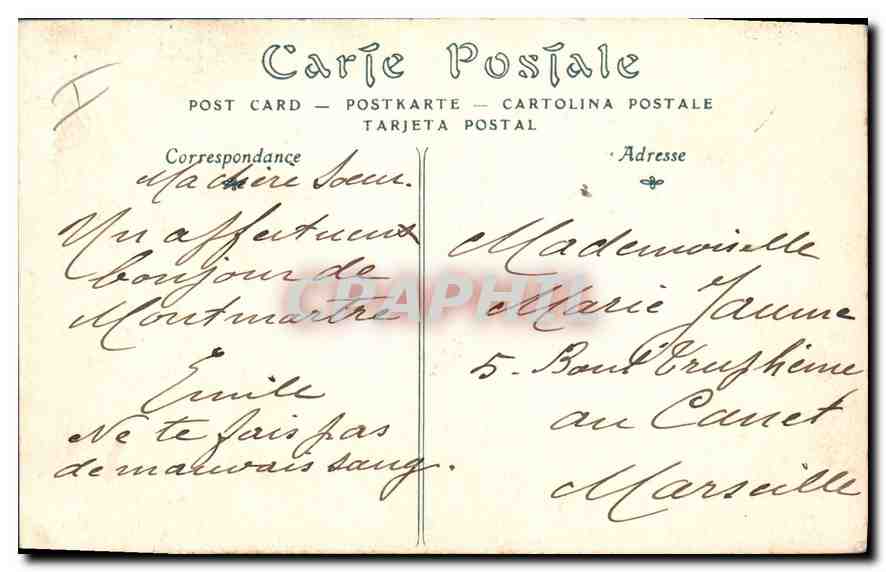 Carte Postale
POST CARD — POSTKARTE — CARTOLINA POSTALE
TARJETA POSTAL
Correspondance
Ma chère Sœur.
Un affectueux
bonjour de
Montmartre
Emile
Ne te fais pas
de mauvais sang.
Adresse
Mademoiselle
Marie Jaume
5. Boul
au Canet
Marseille